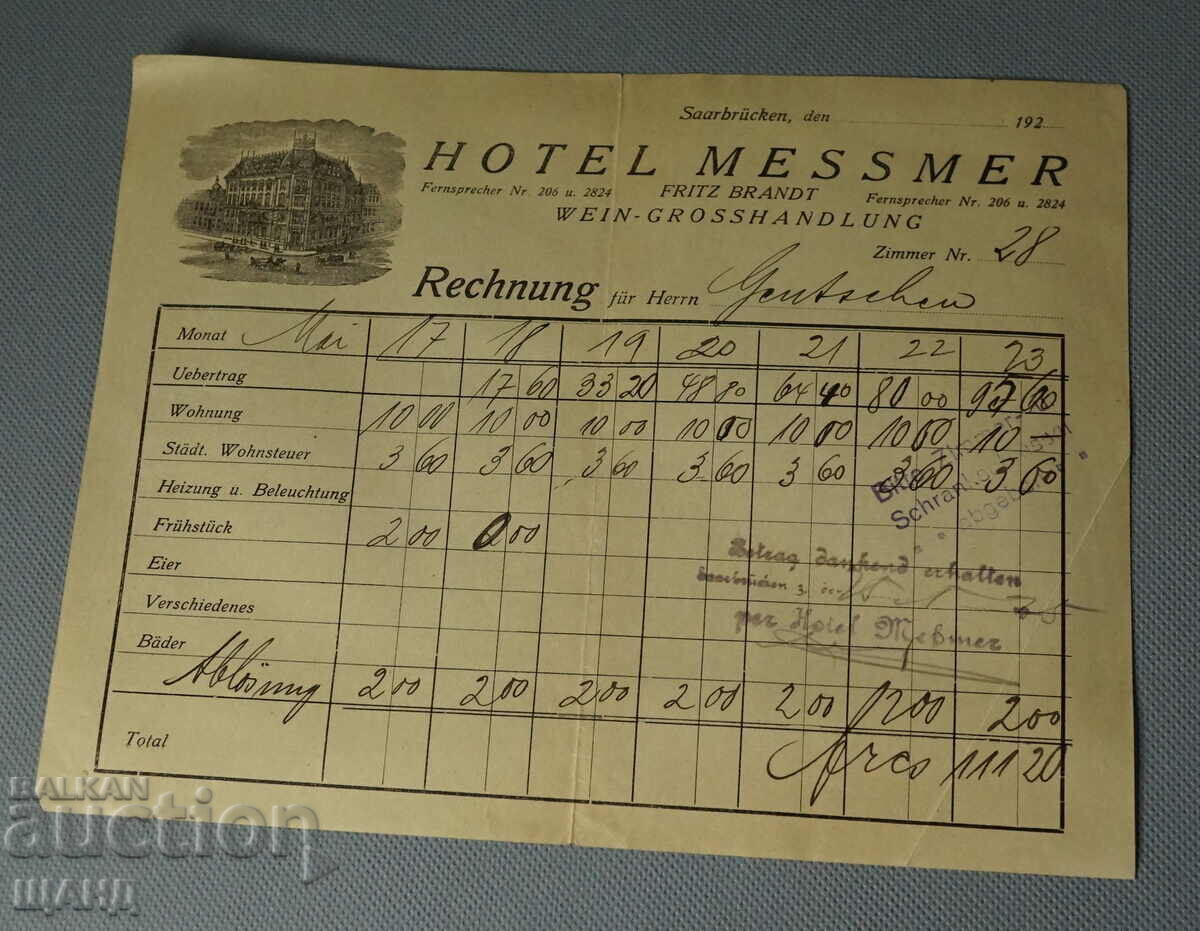 Saarbrücken, den 192
HOTEL MESSMER
Fernsprecher Nr. 206 u. 2824 FRITZ BRANDT Fernsprecher Nr. 206 u. 2824
WEIN-GROSSHANDLUNG
Zimmer Nr. 28
Rechnung für Herrn Gentschen
Monat Mai 17 18 19 20 21 22 23
Uebertrag 17 60 33 20 48 80 64 40 80 00 95 60
Wohnung 10 00 10 00 10 00 10 00 10 00 10 00 10 —
Städt. Wohnsteuer 3 60 3 60 3 60 3 60 3 60 3 60 3 60
Heizung u. Beleuchtung
Frühstück 2 00 00
Eier
Verschiedenes
Bäder
Ablösung 2 00 2 00 2 00 2 00 2 00 2 00 2 00
Total frcs 111 20
Bitte
Schrank
abgeben
Betrag dankend erhalten
Saarbrücken, den
per Hotel Meßmer
BALKAN
auction
ЩАНД